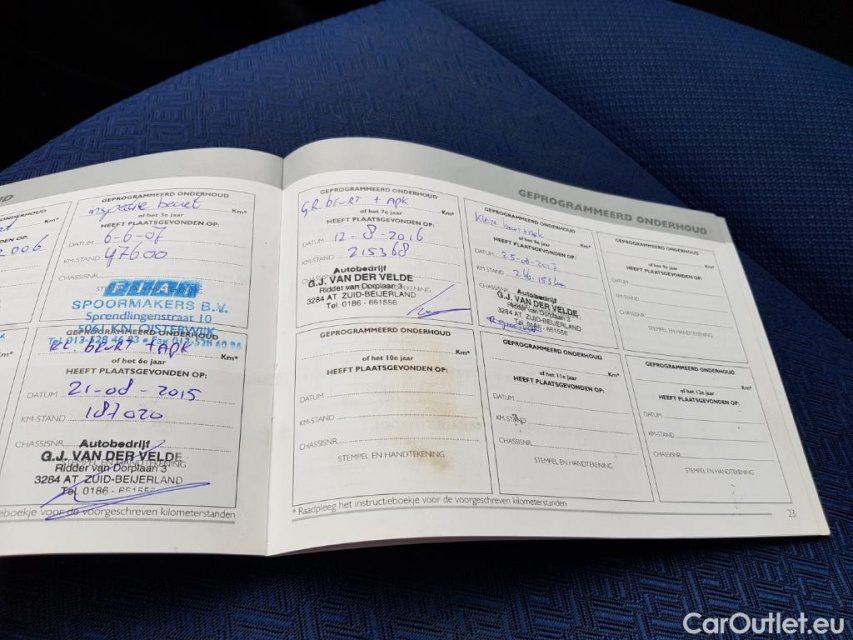 D
GEPROGRAMMEERD ONDERHOUD
2006
Km*
GEPROGRAMMEERD ONDERHOUD
inspectie beurt
of het 3e jaar
Km*
HEEFT PLAATSGEVONDEN OP:
DATUM 6-6-07
KM-STAND 47600
CHASSISNR.
FIAT
SPOORMAKERS B.V.
Sprendlingenstraat 10
5061 KN OISTERWIJK
Tel. 013-528 46 83 • Fax 013-528
GEPROGRAMMEERD ONDERHOUD
KL. BEURT + APK
of het 6e jaar
Km*
HEEFT PLAATSGEVONDEN OP:
DATUM 21-08-2015
KM-STAND 187020
CHASSISNR.
Autobedrijf
G.J. VAN DER VELDE
Ridder van Dorplaan 3
3284 AT ZUID-BEIJERLAND
Tel. 0186 - 661556
voor de voorgeschreven kilometerstanden
GEPROGRAMMEERD ONDERHOUD
GEPROGRAMMEERD ONDERHOUD
GR BEURT + APK
of het 7e jaar
Km*
HEEFT PLAATSGEVONDEN OP:
DATUM 12-8-2016
KM-STAND 215368
Autobedrijf
G.J. VAN DER VELDE
Ridder van Dorplaan 3
3284 AT ZUID-BEIJERLAND
Tel. 0186 - 661556
GEPROGRAMMEERD ONDERHOUD
Kleine beurt + apk
of het 8e jaar
Km*
HEEFT PLAATSGEVONDEN OP:
DATUM
KM-STAND
CHASSISNR.
Autobedrijf
G.J. VAN DER VELDE
Ridder van Dorplaan 3
3284 AT ZUID-BEIJERLAND
Tel. 0186 - 661556
GEPROGRAMMEERD ONDERHOUD
of het 9e jaar
Km*
HEEFT PLAATSGEVONDEN OP:
DATUM
KM-STAND
CHASSISNR.
STEMPEL EN HANDTEKENING
GEPROGRAMMEERD ONDERHOUD
of het 10e jaar
Km*
HEEFT PLAATSGEVONDEN OP:
DATUM
KM-STAND
CHASSISNR.
STEMPEL EN HANDTEKENING
GEPROGRAMMEERD ONDERHOUD
of het 11e jaar
Km*
HEEFT PLAATSGEVONDEN OP:
DATUM
KM-STAND
CHASSISNR.
STEMPEL EN HANDTEKENING
GEPROGRAMMEERD ONDERHOUD
of het 12e jaar
Km*
HEEFT PLAATSGEVONDEN OP:
DATUM
KM-STAND
CHASSISNR.
STEMPEL EN HANDTEKENING
* Raadpleeg het instructieboekje voor de voorgeschreven kilometerstanden
23
CarOutlet.eu